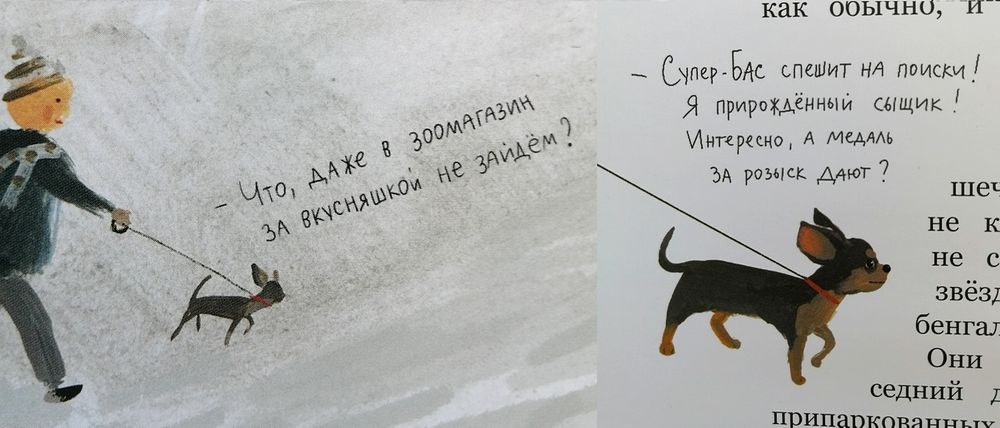 – Что, даже в зоомагазин
за вкусняшкой не зайдём?
как обычно, и
– Супер-Бас спешит на поиски!
Я прирождённый сыщик!
Интересно, а медаль
за розыск дают?
шеч
не к
не с
звёзд
бенгал
Они
седний д
припаркованных